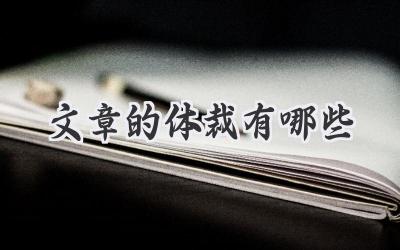 文章的体裁有哪些